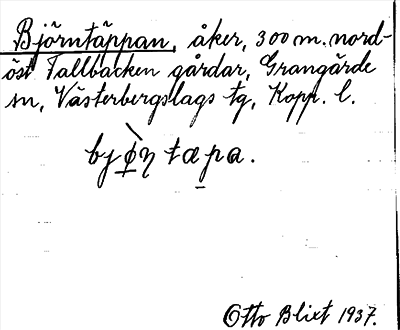 Björntäppan, åker, 300 m. nord-
öst Tallbacken gårdar, Grangärde
sn, Västerbergslags tg, Kopp. l.
Otto Blixt 1937.